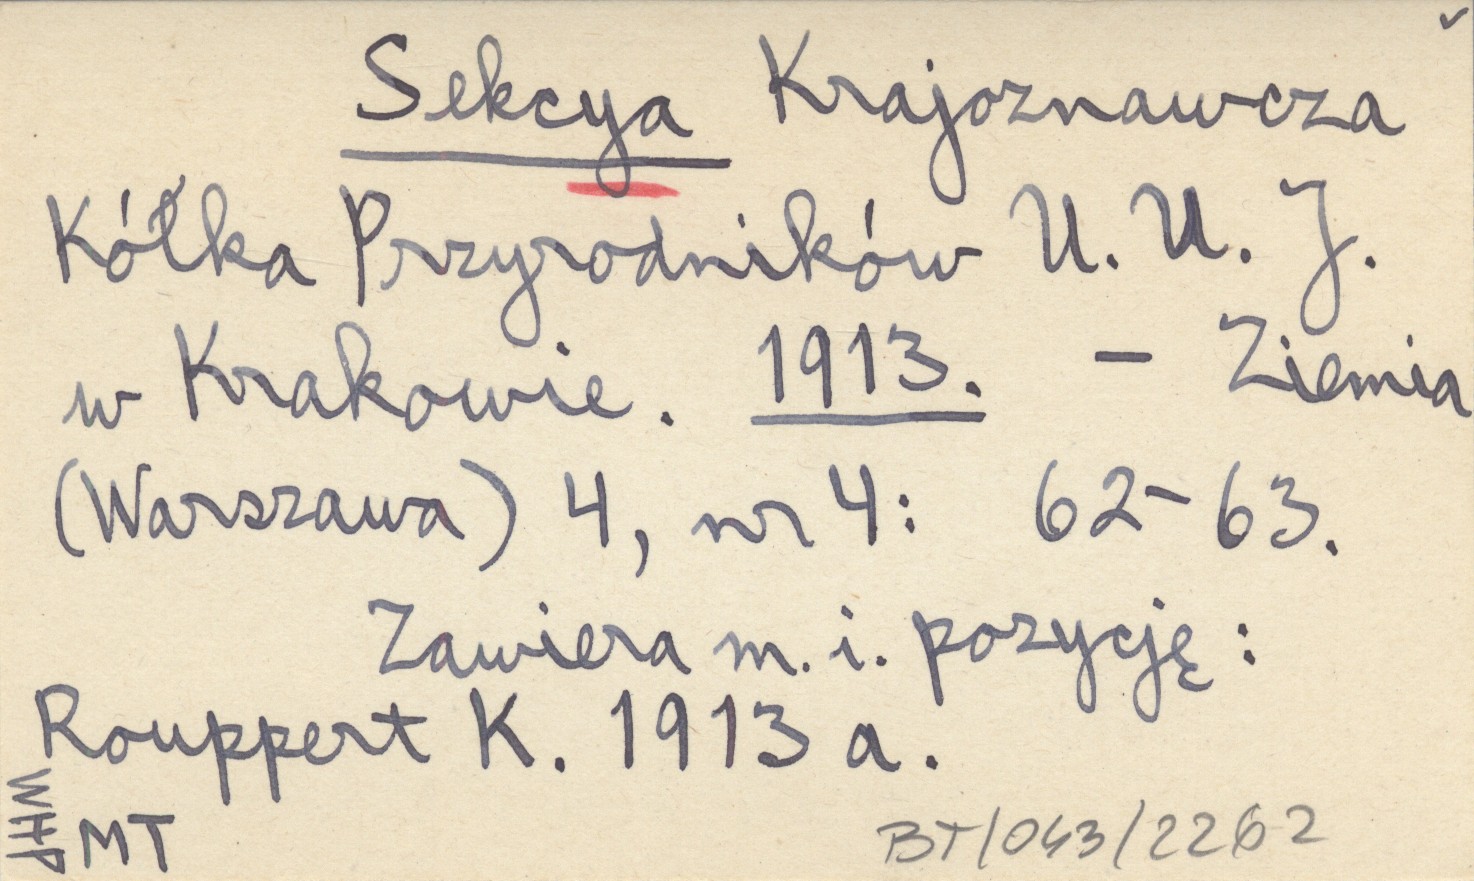 Sekcya Krajoznawcza
Kółka Przyrodników U. U. J.
w Krakowie. 1913. – Ziemia
(Warszawa) 4, nr 4: 62–63.
Zawiera m. i. pozycję:
Rouppert K. 1913 a.
WHP
MT
BT/043/2262